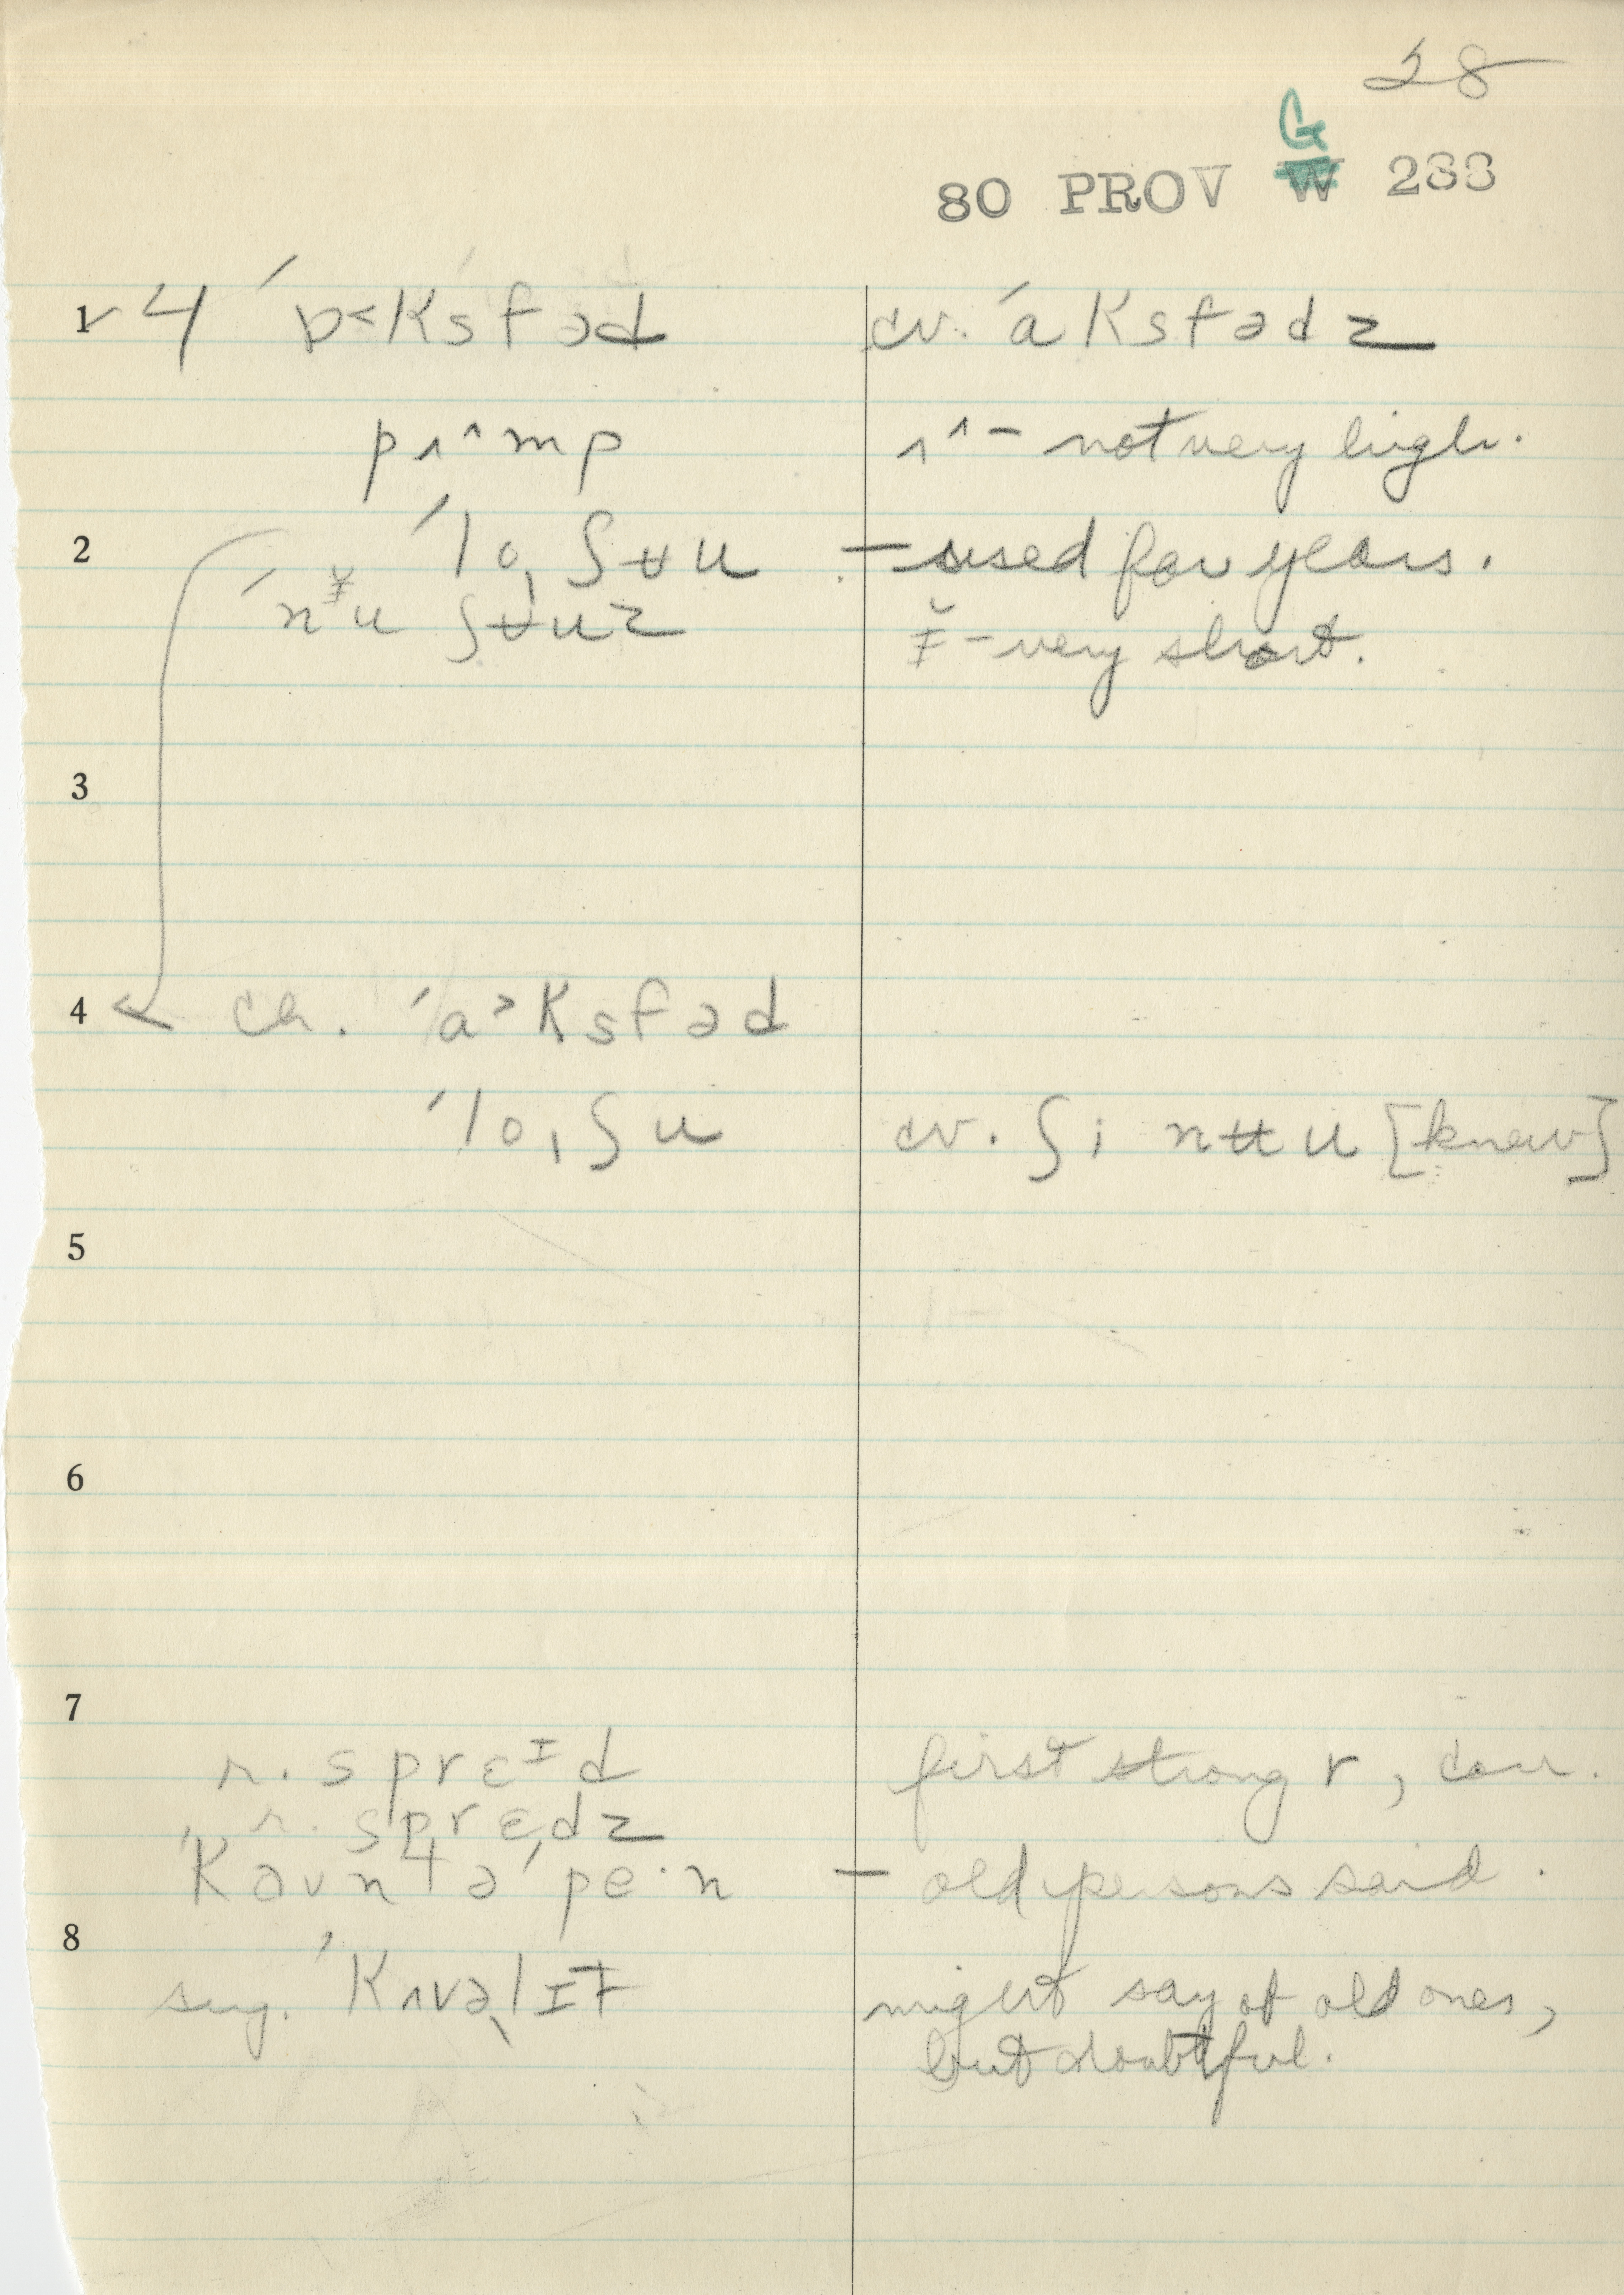 28
G
80 PROV W 288
1 ✓ 4 ˈɒ˂ksfəd cv. ˈaksfədz
pʌ^mp ʌ^ – not very high.
2 ˈlo̩ ʃʉu – used for years.
ˈnɪ̵̆u ʃʉuz ɪ̵̆ – very short.
3
4 ← ch. ˈa˃ksfəd
ˈlo̩ ʃu cv. ʃi nʉu [knew]
5
6
7
r. sprɛɪd first strong r, corr.
r. sprɛ̩dz
ˈkəʊntəˈpe·n – old persons said.
8
sug. ˈkʌvə̩lɪt might say of old ones,
but doubtful.